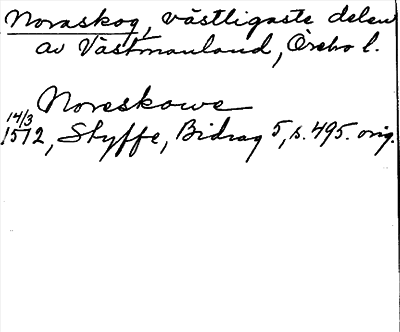 Noraskog, västligaste delen
av Västmanland, Örebo l.
Noreskowe
14/3
1512, Styffe, Bidrag 5, s. 495. orig.